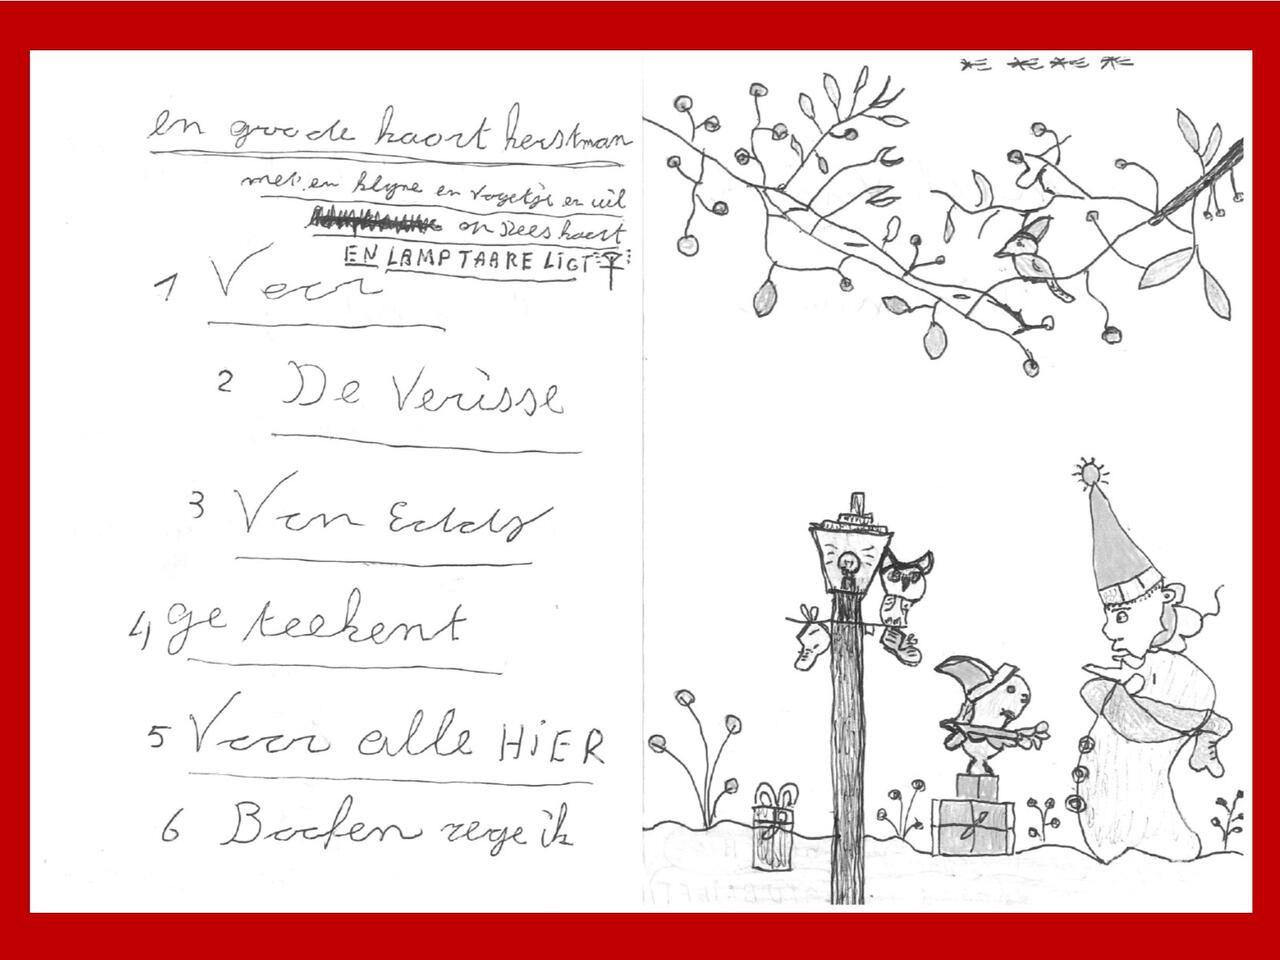 en groote kaort kerstman
met en klyne en vogetje en uil
op dees kaort
EN LAMP TAARE LIGT
1 Voor
2 De Verisse
3 Van Eddy
4) ge teekent
5 Voor alle HIER
6 Boofen zege ik